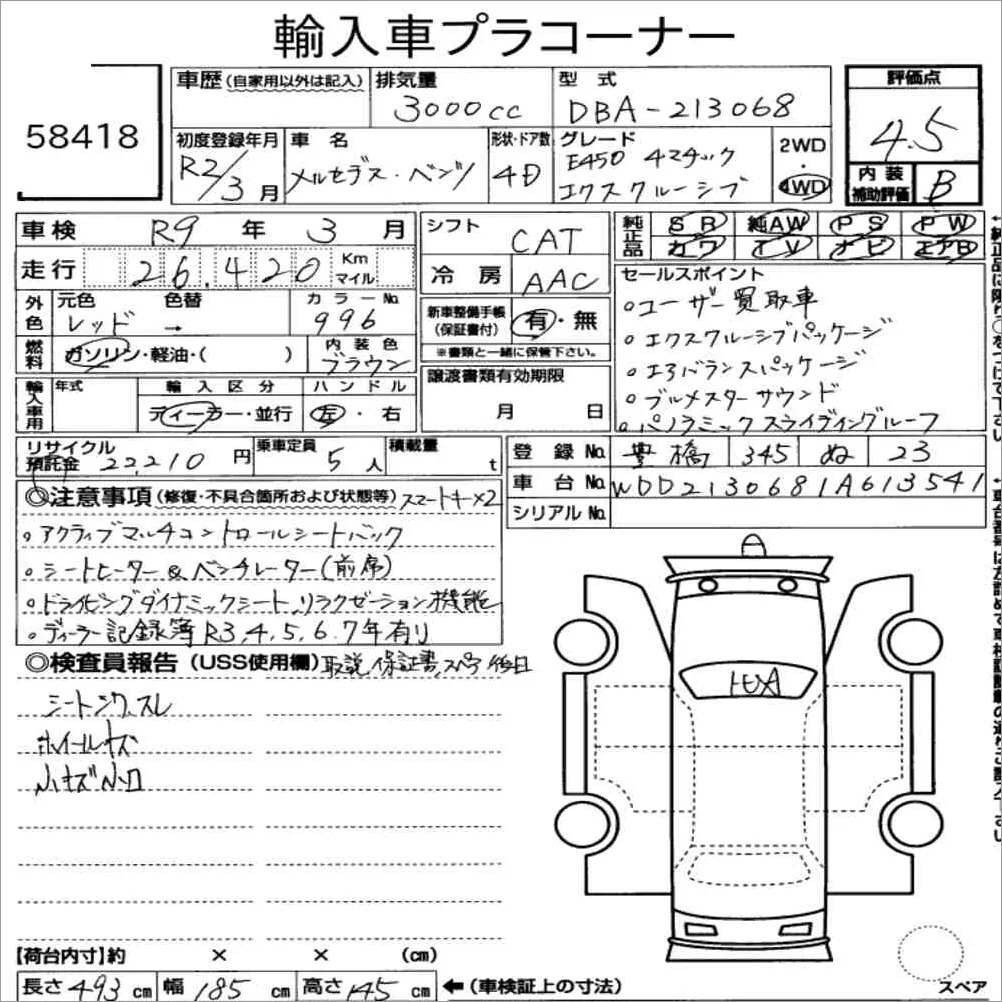 輸入車プラコーナー
58418
車歴(自家用以外は記入)
排気量
3000cc
型式
DBA-213068
評価点
4.5
初度登録年月
R2/3月
車名
メルセデス・ベンツ
形状・ドア数
4D
グレード
E450 4マチック
エクスクルーシブ
2WD
・
4WD
内装
補助評価
B
車検 R9年3月
走行 26,420 Km
マイル
シフト
CAT
冷房
AAC
純正品
SR 純AW PS PW
カワ TV ナビ エアB
外色
元色
レッド
色替
→
カラーNo.
996
燃料
ガソリン・軽油・( )
内装色
ブラウン
新車整備手帳
(保証書付)
有・無
※書類と一緒に保管下さい。
セールスポイント
○ユーザー買取車
○エクスクルーシブパッケージ
○エアバランスパッケージ
○ブルメスターサウンド
○パノラミックスライディングルーフ
輸入車用
年式
輸入区分
ディーラー・並行
ハンドル
左・右
譲渡書類有効期限
月 日
リサイクル
預託金 22,210円
乗車定員 5人
積載量 t
登録No. 豊橋 345 ぬ 23
車台No. WDD2130681A613541
シリアルNo.
◎注意事項(修復・不具合箇所および状態等)スマートキー×2
○アクティブマルチコントロールシートバック
○シートヒーター&ベンチレーター(前席)
○ドライビングダイナミックシート、リラクゼーション機能
○ディーラー記録簿R3,4,5,6,7年有り
◎検査員報告(USS使用欄)取説、保証書、スペア後日
シートシワ、スレ
ホイールキズ
小キズ小凹
【荷台内寸】約 × × (cm)
長さ493cm 幅185cm 高さ145cm ←(車検証上の寸法)
スペア